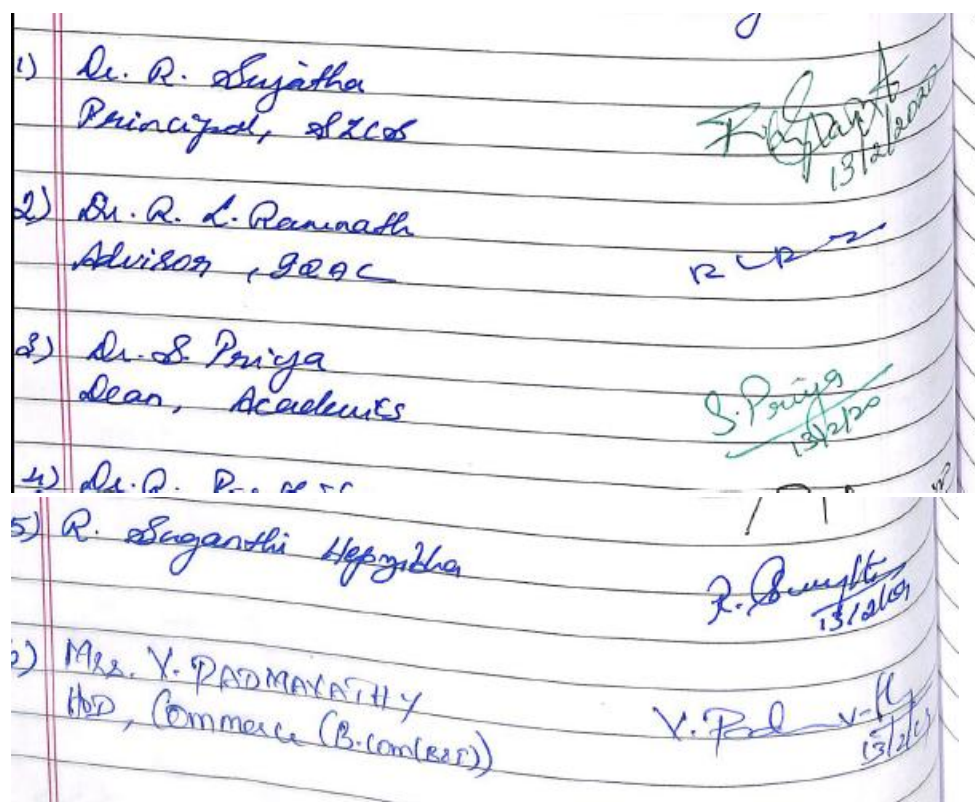 1) Dr. R. Sujatha
Principal, SZCS
13/2/2020
2) Dr. R. L. Ramnath
Advisor, IQAC
3) Dr. S. Priya
Dean, Academics
S. Priya
13/2/20
4) Dr. R.
5) R. Suganthi Hepzibha
13/2/
) Mrs. V. PADMAVATHY
HoD, Commerce (B.Com(B&F))
V. Pad
13/2/